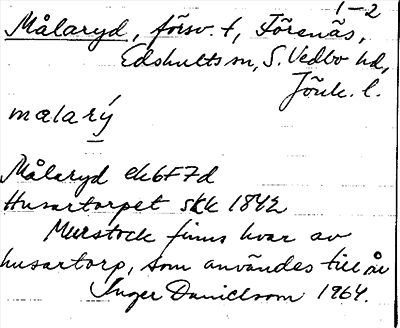 1-2
Målaryd, försv. t, Förenäs,
Edshults sn, S. Vedbo hd,
Jönk. l.
malarý
Målaryd ek6F7d
Husartorpet skk 1842
Murstock finns kvar av
husartorp, som användes till år
Inger Danielsson 1964.